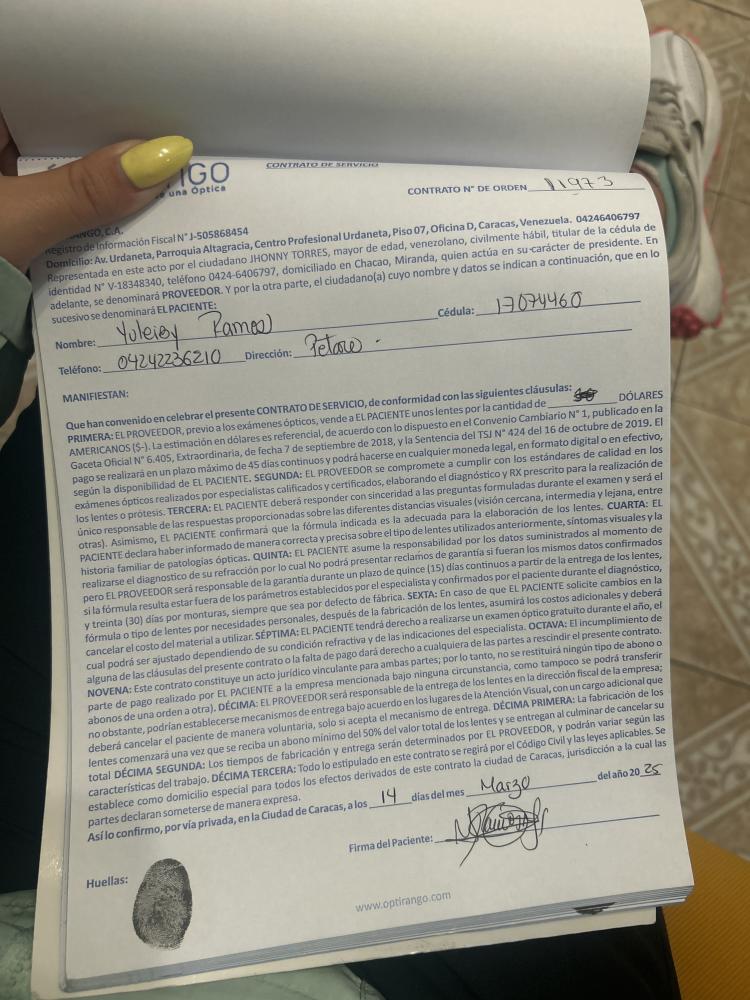 IGO
una Óptica
CONTRATO DE SERVICIO
CONTRATO N° DE ORDEN 11973
ANGO, C.A.
Registro de Información Fiscal N° J-505868454
Domicilio: Av. Urdaneta, Parroquia Altagracia, Centro Profesional Urdaneta, Piso 07, Oficina D, Caracas, Venezuela. 04246406797
Representada en este acto por el ciudadano JHONNY TORRES, mayor de edad, venezolano, civilmente hábil, titular de la cédula de
identidad N° V-18348340, teléfono 0424-6406797, domiciliado en Chacao, Miranda, quien actúa en su carácter de presidente. En
adelante, se denominará PROVEEDOR. Y por la otra parte, el ciudadano(a) cuyo nombre y datos se indican a continuación, que en lo
sucesivo se denominará EL PACIENTE:
Nombre: Yuleisy Ramos Cédula: 17074460
Teléfono: 04242236210 Dirección: Petare.
MANIFIESTAN:
Que han convenido en celebrar el presente CONTRATO DE SERVICIO, de conformidad con las siguientes cláusulas:
PRIMERA: EL PROVEEDOR, previo a los exámenes ópticos, vende a EL PACIENTE unos lentes por la cantidad de DÓLARES
AMERICANOS ($-). La estimación en dólares es referencial, de acuerdo con lo dispuesto en el Convenio Cambiario N° 1, publicado en la
Gaceta Oficial N° 6.405, Extraordinaria, de fecha 7 de septiembre de 2018, y la Sentencia del TSJ N° 424 del 16 de octubre de 2019. El
pago se realizará en un plazo máximo de 45 días continuos y podrá hacerse en cualquier moneda legal, en formato digital o en efectivo,
según la disponibilidad de EL PACIENTE. SEGUNDA: EL PROVEEDOR se compromete a cumplir con los estándares de calidad en los
exámenes ópticos realizados por especialistas calificados y certificados, elaborando el diagnóstico y RX prescrito para la realización de
los lentes o prótesis. TERCERA: EL PACIENTE deberá responder con sinceridad a las preguntas formuladas durante el examen y será el
único responsable de las respuestas proporcionadas sobre las diferentes distancias visuales (visión cercana, intermedia y lejana, entre
otras). Asimismo, EL PACIENTE confirmará que la fórmula indicada es la adecuada para la elaboración de los lentes. CUARTA: EL
PACIENTE declara haber informado de manera correcta y precisa sobre el tipo de lentes utilizados anteriormente, síntomas visuales y la
historia familiar de patologías ópticas. QUINTA: EL PACIENTE asume la responsabilidad por los datos suministrados al momento de
realizarse el diagnostico de su refracción por lo cual No podrá presentar reclamos de garantía si fueran los mismos datos confirmados
pero EL PROVEEDOR será responsable de la garantía durante un plazo de quince (15) días continuos a partir de la entrega de los lentes,
si la fórmula resulta estar fuera de los parámetros establecidos por el especialista y confirmados por el paciente durante el diagnóstico,
y treinta (30) días por monturas, siempre que sea por defecto de fábrica. SEXTA: En caso de que EL PACIENTE solicite cambios en la
fórmula o tipo de lentes por necesidades personales, después de la fabricación de los lentes, asumirá los costos adicionales y deberá
cancelar el costo del material a utilizar. SÉPTIMA: EL PACIENTE tendrá derecho a realizarse un examen óptico gratuito durante el año, el
cual podrá ser ajustado dependiendo de su condición refractiva y de las indicaciones del especialista. OCTAVA: El incumplimiento de
alguna de las cláusulas del presente contrato o la falta de pago dará derecho a cualquiera de las partes a rescindir el presente contrato.
NOVENA: Este contrato constituye un acto jurídico vinculante para ambas partes; por lo tanto, no se restituirá ningún tipo de abono o
parte de pago realizado por EL PACIENTE a la empresa mencionada bajo ninguna circunstancia, como tampoco se podrá transferir
abonos de una orden a otra). DÉCIMA: EL PROVEEDOR será responsable de la entrega de los lentes en la dirección fiscal de la empresa;
no obstante, podrían establecerse mecanismos de entrega bajo acuerdo en los lugares de la Atención Visual, con un cargo adicional que
deberá cancelar el paciente de manera voluntaria, solo si acepta el mecanismo de entrega. DÉCIMA PRIMERA: La fabricación de los
lentes comenzará una vez que se reciba un abono mínimo del 50% del valor total de los lentes y se entregan al culminar de cancelar su
total DÉCIMA SEGUNDA: Los tiempos de fabricación y entrega serán determinados por EL PROVEEDOR, y podrán variar según las
características del trabajo. DÉCIMA TERCERA: Todo lo estipulado en este contrato se regirá por el Código Civil y las leyes aplicables. Se
establece como domicilio especial para todos los efectos derivados de este contrato la ciudad de Caracas, jurisdicción a la cual las
partes declaran someterse de manera expresa.
Así lo confirmo, por vía privada, en la Ciudad de Caracas, a los 14 días del mes Marzo del año 2025
Firma del Paciente:
Huellas:
www.optirango.com